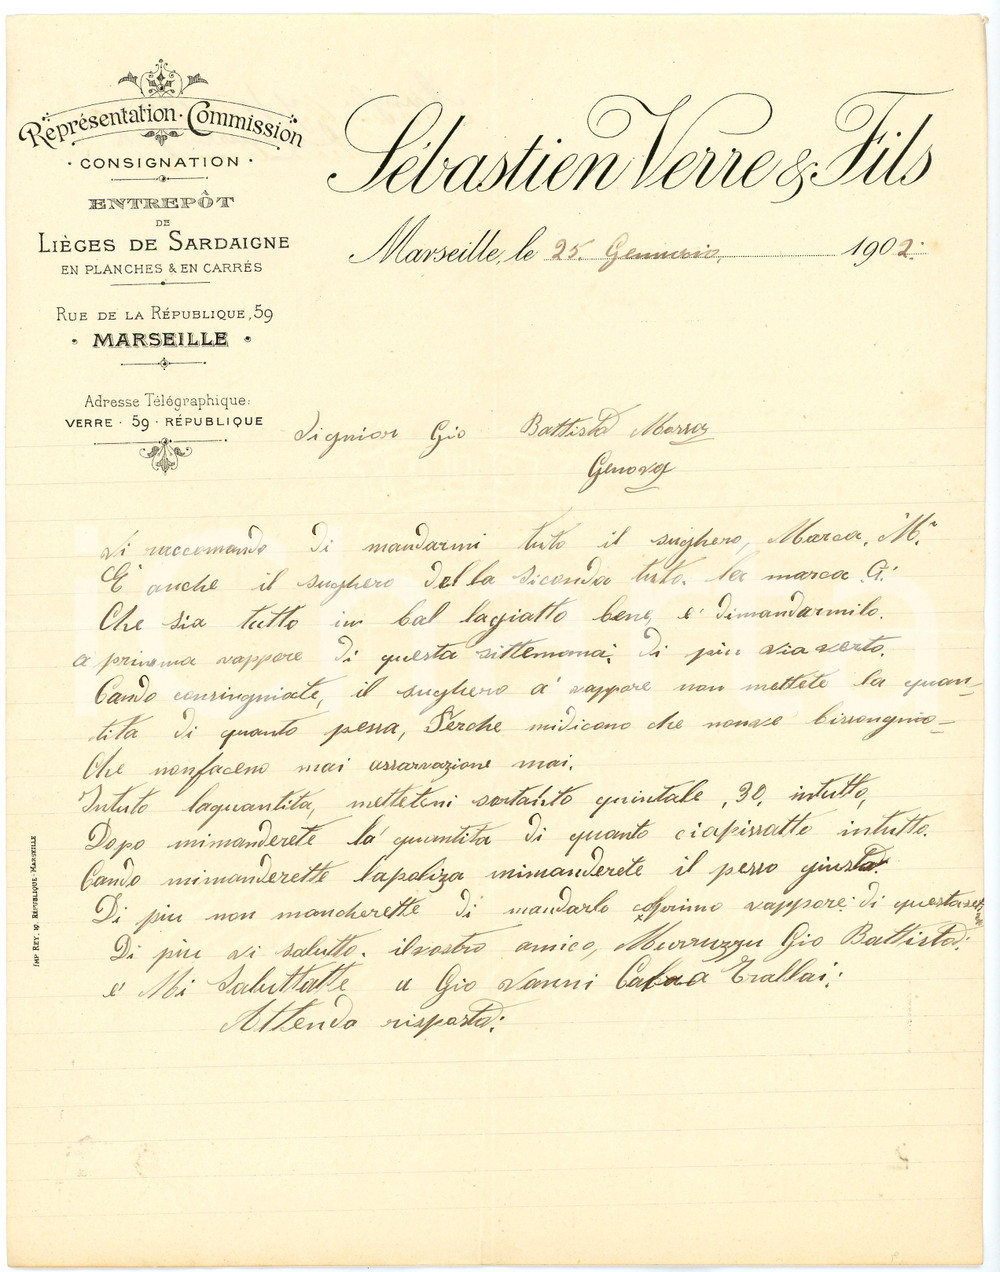 Représentation · Commission
· CONSIGNATION ·
ENTREPÔT
DE
LIÈGES DE SARDAIGNE
EN PLANCHES & EN CARRÉS
RUE DE LA RÉPUBLIQUE, 59
· MARSEILLE ·
Adresse Télégraphique:
VERRE · 59 · RÉPUBLIQUE
Sébastien Verre & Fils
Marseille, le 25. Gennaio, 1902.
Signior Gio Battista
Genova
Vi raccomando di mandarmi tuto il sughero, Marca. "M."
E' anche il sughero della siconda tuto. la marca .G.'
Che sia tutto in bal lagiatto bene, e' dimandarmilo.
a prinma vappore di questa sittemana; di piu via verto.
Cando consingniate, il sughero a' vappore non mettete la quan-
tita di quanto pessa, Perche midicono che nonve bissongnio-
Che nonfaceno mai assarvazione mai.
Intuto laquantita, metteteni sortanto quintale ,30, intutto,
Dopo mimanderete la' quantita di quanto ciapissatto intutto.
Cando mimanderette lapoliza mimanderete il pesso giusto.
Di piu non mancherette di mandarlo primo vappore. di questa
Di piu vi salutto. ilvostro amico, Murruzzu Gio Battista:
e' Mi Saluttatte a Gio vanni Trallai;
Attendo risposta:
IMP. REY. 19. RÉPUBLIQUE - MARSEILLE